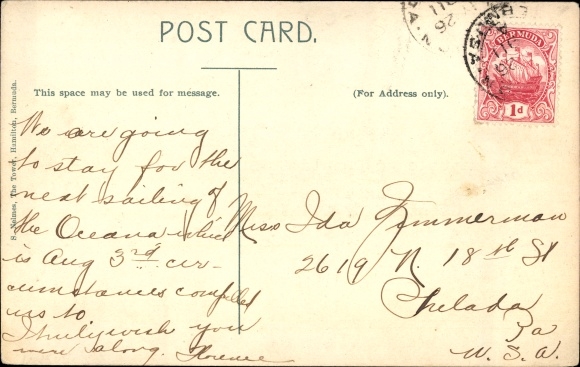 POST CARD.
This space may be used for message.
(For Address only).
BERMUDA
1d
S. Nelmes, The Tower, Hamilton, Bermuda.
We are going
to stay for the
next sailing of
the Oceana which
is Aug 3rd cir-
cumstances compelled
us to.
I truly wish you
were along. Florence
Miss Ida Zimmerman
2619 N. 18th St
Philada
Pa
U. S. A.